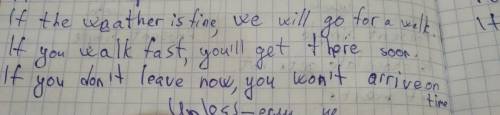 If the weather is fine, we will go for a walk. If
If you walk fast, you'll get there soon.
If you don't leave now, you won't arrive on
time
Unless